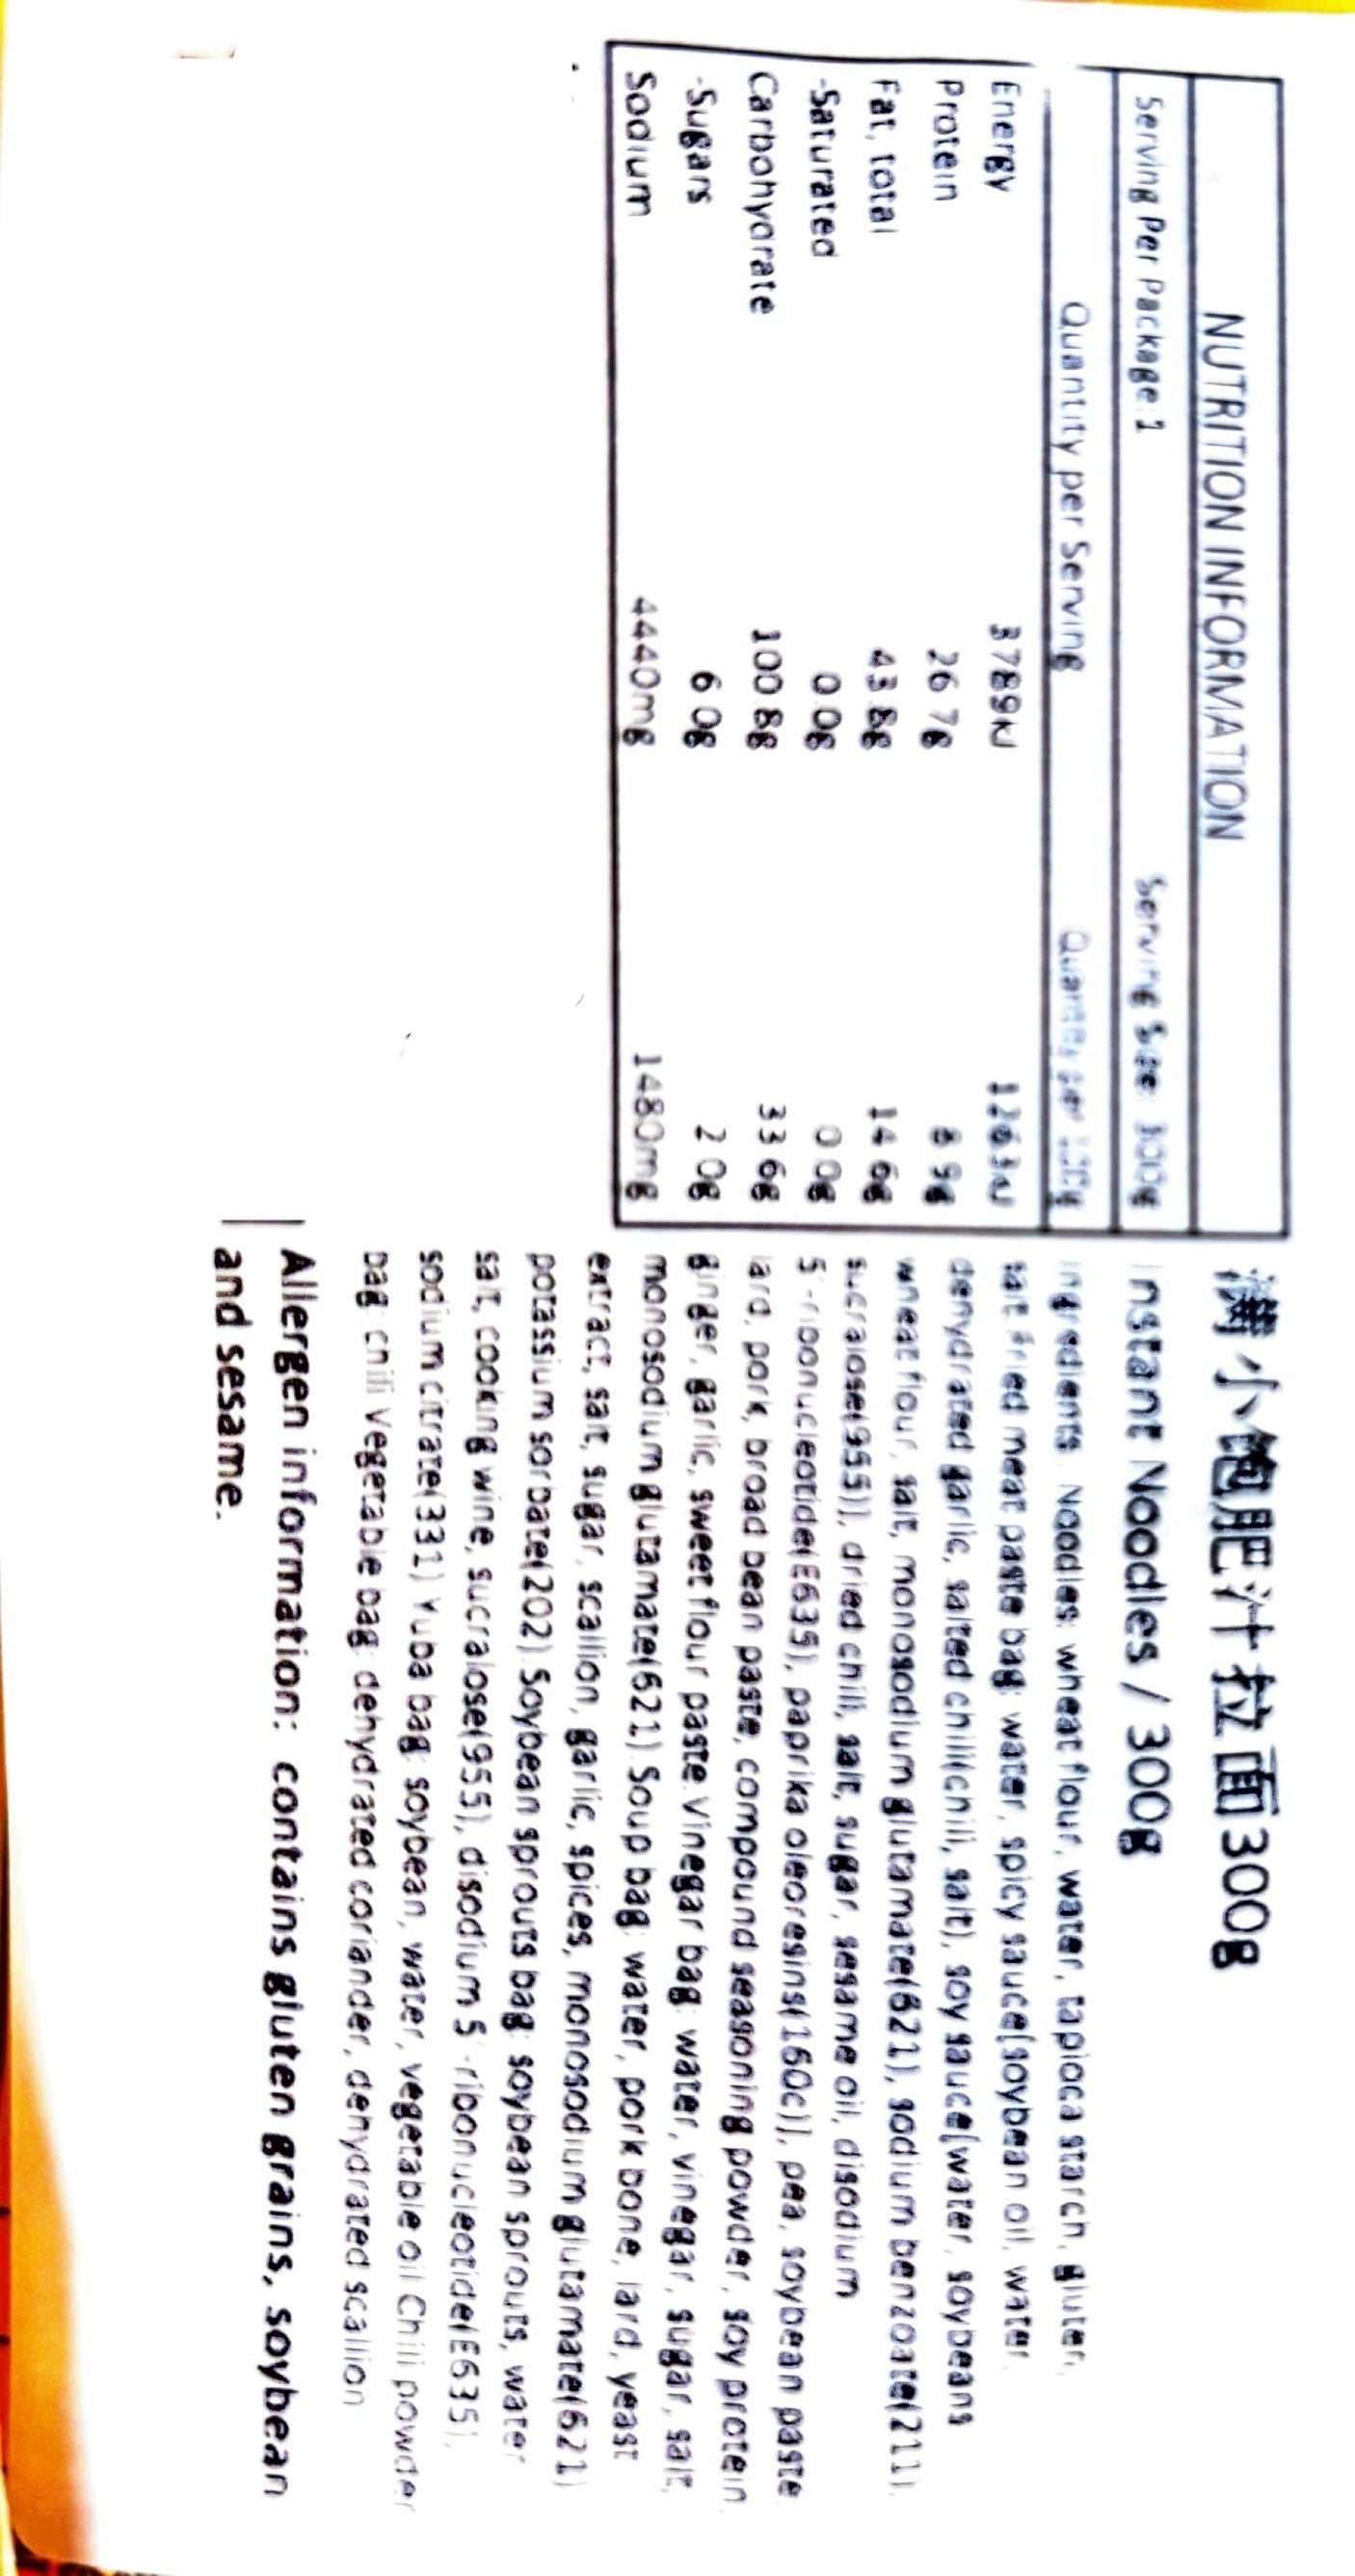 NUTRITION INFORMATION
Serving Per Package:1 Serving Size: 300g
Quantity per Serving Quantity per 100g
Energy 3789kJ 1263kJ
Protein 26.7g 8.9g
Fat, total 43.8g 14.6g
-Saturated 0.0g 0.0g
Carbohydrate 100.8g 33.6g
-Sugars 6.0g 2.0g
Sodium 4440mg 1480mg
小 肥汁拉面300g
Instant Noodles / 300g
Ingredients: Noodles: wheat flour, water, tapioca starch, gluten,
salt Fried meat paste bag: water, spicy sauce[soybean oil, water,
dehydrated garlic, salted chili(chili, salt), soy sauce(water, soybeans
wheat flour, salt, monosodium glutamate(621), sodium benzoate(211),
sucralose(955)), dried chili, salt, sugar, sesame oil, disodium
5'-ribonucleotide(E635), paprika oleoresins(160c)], pea, soybean paste
lard, pork, broad bean paste, compound seasoning powder, soy protein,
ginger, garlic, sweet flour paste. Vinegar bag: water, vinegar, sugar, salt,
monosodium glutamate(621) Soup bag: water, pork bone, lard, yeast
extract, salt, sugar, scallion, garlic, spices, monosodium glutamate(621)
potassium sorbate(202) Soybean sprouts bag: soybean sprouts, water
salt, cooking wine, sucralose(955), disodium 5'-ribonucleotide(E635),
sodium citrate(331) Yuba bag: soybean, water, vegetable oil Chili powder
bag: chili Vegetable bag: dehydrated coriander, dehydrated scallion
Allergen information: contains gluten grains, soybean
and sesame.